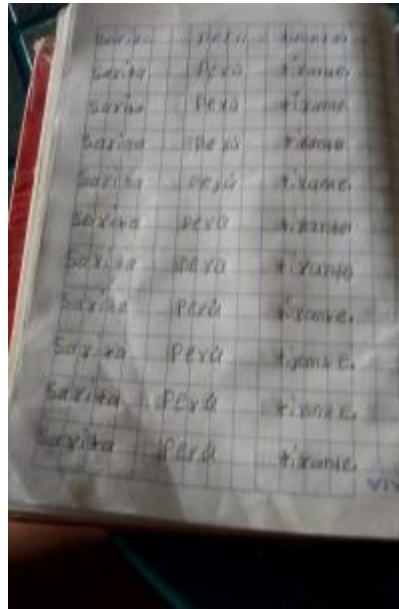 Sarita perú tirante.
Sarita perú tirante.
Sarita perú tirante.
Sarita perú tirante
Sarita perú tirante.
Sarita perú tirante
Sarita perú tirante
Sarita perú tirante.
Sarita perú tirante.
Sarita perú tirante.
Sarita perú tirante.